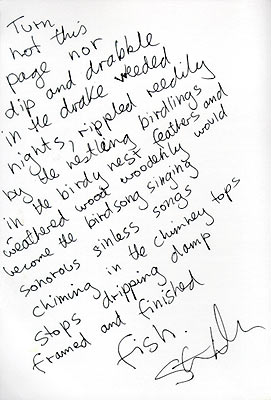 Turn
not this
page nor
dip and drabble
in the drake weeded
nights, rippled reedily
by the nestling birdlings
in the birdy nest feathers and
weathered wood woodenly would
become the birdsong singing
sonorous sinless songs
chiming in the chimney tops
stops dripping damp
framed and finished
fish.